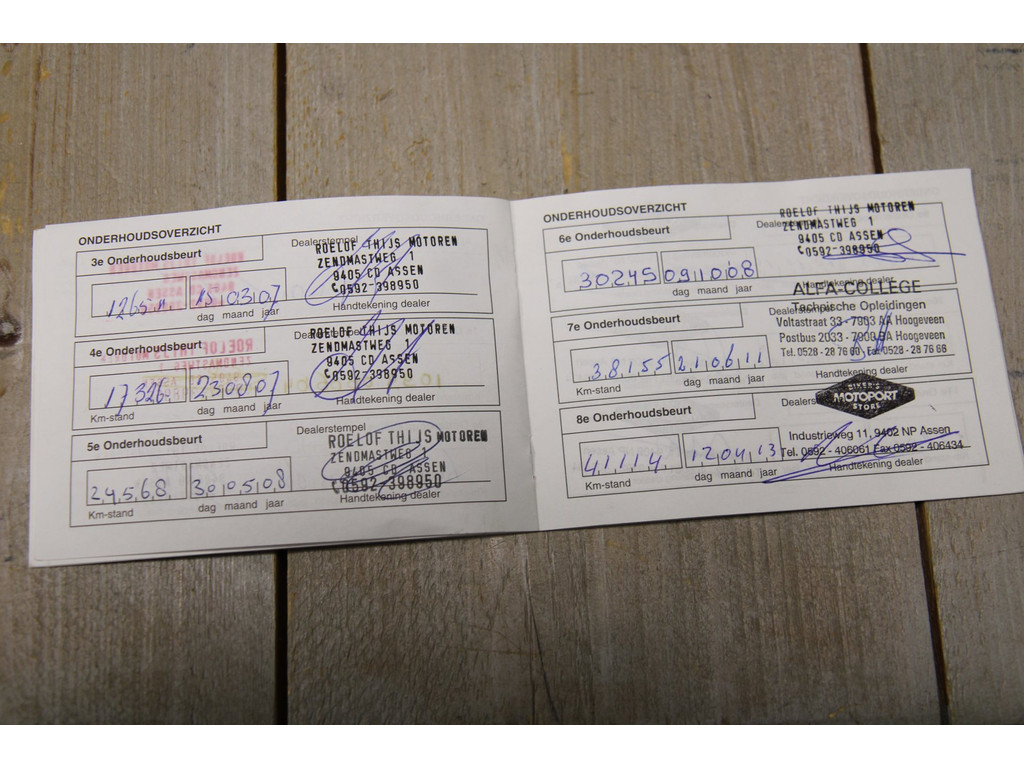 ONDERHOUDSOVERZICHT
3e Onderhoudsbeurt
Dealerstempel
ROELOF THIJS MOTOREN
ZENDMASTWEG 1
9405 CD ASSEN
0592-398950
15 03 07
dag maand jaar
Handtekening dealer
4e Onderhoudsbeurt
ROELOF THIJS MOTOREN
ZENDMASTWEG
9405 CD ASSEN
0592-398950
17326 23 08 07
Km-stand dag maand jaar
Handtekening dealer
5e Onderhoudsbeurt
Dealerstempel
ROELOF THIJS MOTOREN
ZENDMASTWEG 1
9405 CD ASSEN
0592-398950
24568 30 05 08
Km-stand dag maand jaar
Handtekening dealer
ONDERHOUDSOVERZICHT
6e Onderhoudsbeurt
ROELOF THIJS MOTOREN
ZENDMASTWEG 1
9405 CD ASSEN
0592-398950
30245 09 10 08
dag maand jaar
Handtekening dealer
7e Onderhoudsbeurt
ALFA-COLLEGE
Technische Opleidingen
Voltastraat 33 - 7903 AA Hoogeveen
Postbus 2033 - 7900 BA Hoogeveen
Tel. 0528 - 28 76 60 Fax 0528 - 28 76 66
38155 21 06 11
Km-stand dag maand jaar
Handtekening dealer
8e Onderhoudsbeurt
BIKER'S
MOTOPORT
STORE
Industrieweg 11, 9402 NP Assen
Tel. 0592 - 406061 Fax 0592 - 406434
41114 12 04 13
Km-stand dag maand jaar
Handtekening dealer